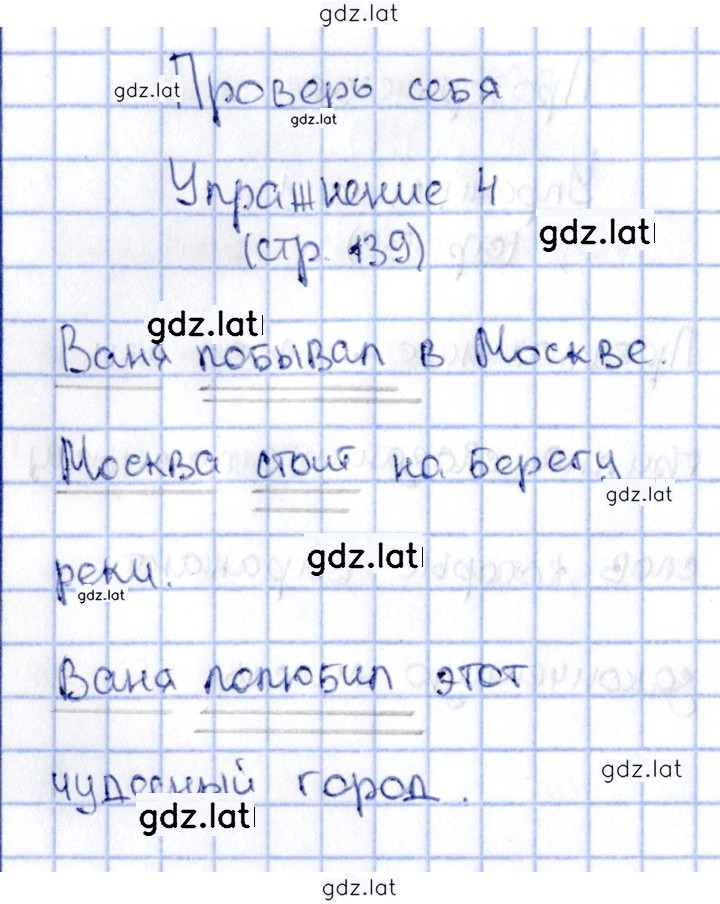 gdz.lat
Проверь себя
gdz.lat
gdz.lat
Упражнение 4
(стр. 139)
gdz.lat
gdz.lat
Ваня побывал в Москве.
Москва стоит на берегу
gdz.lat
gdz.lat
реки.
gdz.lat
Ваня полюбил этот
gdz.lat
чудесный город.
gdz.lat
gdz.lat